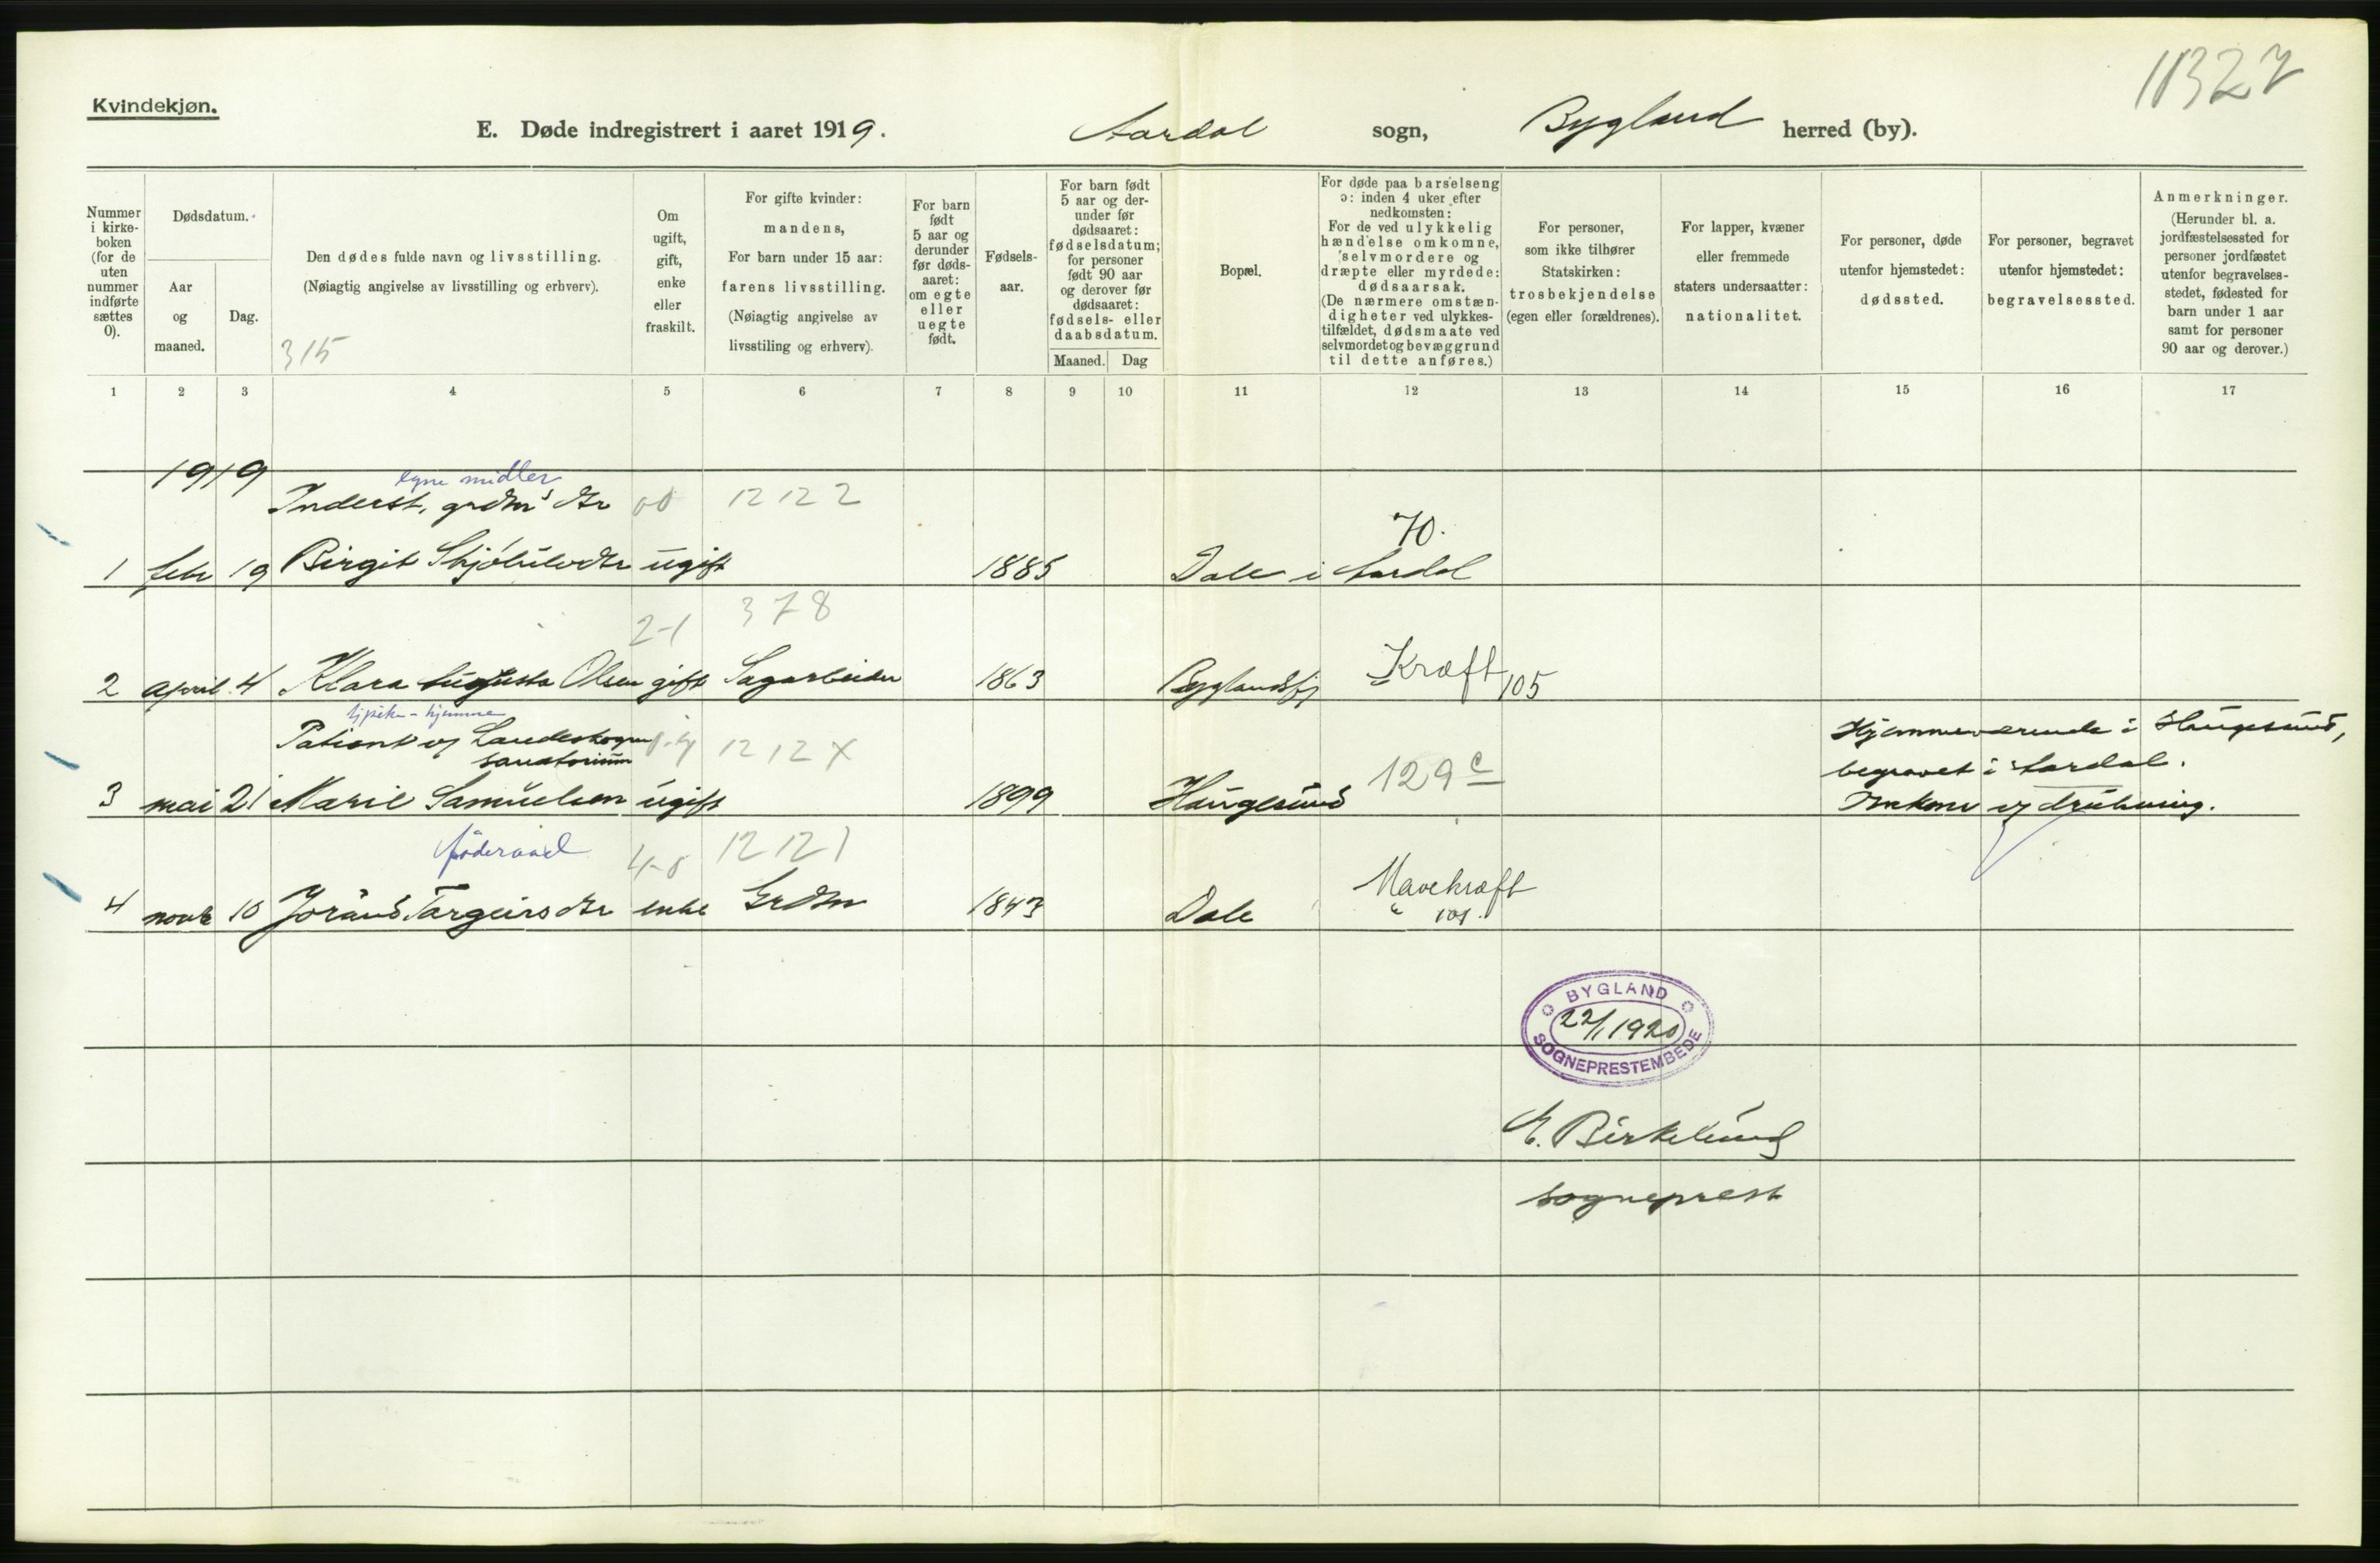 11327
Kvindekjøn.
E. Døde indregistrert i aaret 1919. Aardal sogn, Bygland herred (by).
Nummer i kirke-boken (for de uten nummer indførte sættes 0).
Dødsdatum.
Aar og maaned.
Dag.
Den dødes fulde navn og livsstilling.
(Nøiagtig angivelse av livsstilling og erhverv).
315
Om ugift, gift, enke eller fraskilt.
For gifte kvinder:
mandens,
For barn under 15 aar:
farens livsstilling.
(Nøiagtig angivelse av
livsstiling og erhverv).
For barn født 5 aar og derunder før døds-aaret: om egte eller uegte født.
Fødsels-aar.
For barn født 5 aar og der-under før dødsaaret: fødselsdatum; for personer født 90 aar og derover før dødsaaret: fødsels- eller daabsdatum.
Maaned. Dag
Bopæl.
For døde paa barselseng
ɔ: inden 4 uker efter
nedkomsten:
For de ved ulykkelig
hændelse omkomne,
selvmordere og
dræpte eller myrdede:
dødsaarsak.
(De nærmere omstæn-
digheter ved ulykkes-
tilfældet, dødsmaate ved
selvmordet og bevæggrund
til dette anføres.)
For personer,
som ikke tilhører
Statskirken:
trosbekjendelse
(egen eller forældrenes).
For lapper, kvæner
eller fremmede
staters undersaatter:
nationalitet.
For personer, døde
utenfor hjemstedet:
dødssted.
For personer, begravet
utenfor hjemstedet:
begravelsessted.
Anmerkninger.
(Herunder bl. a.
jordfæstelsessted for
personer jordfæstet
utenfor begravelses-
stedet, fødested for
barn under 1 aar
samt for personer
90 aar og derover.)
1 2 3 4 5 6 7 8 9 10 11 12 13 14 15 16 17
1919
egne midler
Inderst, grdms dtr 12 12 2
70.
1 febr 19 Birgit ugift 1885 Dale i Aardal
2-1 378
2 april 4 Klara Augusta Olsen gift Sagarbeider 1863 Byglandsfj Kræft 105
hjemme
Patient og Landeskogen sanatorium 12 12 X 129 c
Hjemmeværende i Haugesund,
begravet i Aardal.
3 mai 21 Marie Samuelsen ugift 1899 Haugesund
føderaad 12 12 1
4 novb 10 Joraand Targeirsdtr enke Grdm 1843 Dale Mavekræft
101.
BYGLAND
22/1 1920
SOGNEPRESTEMBEDE
Birkelund
sogneprest